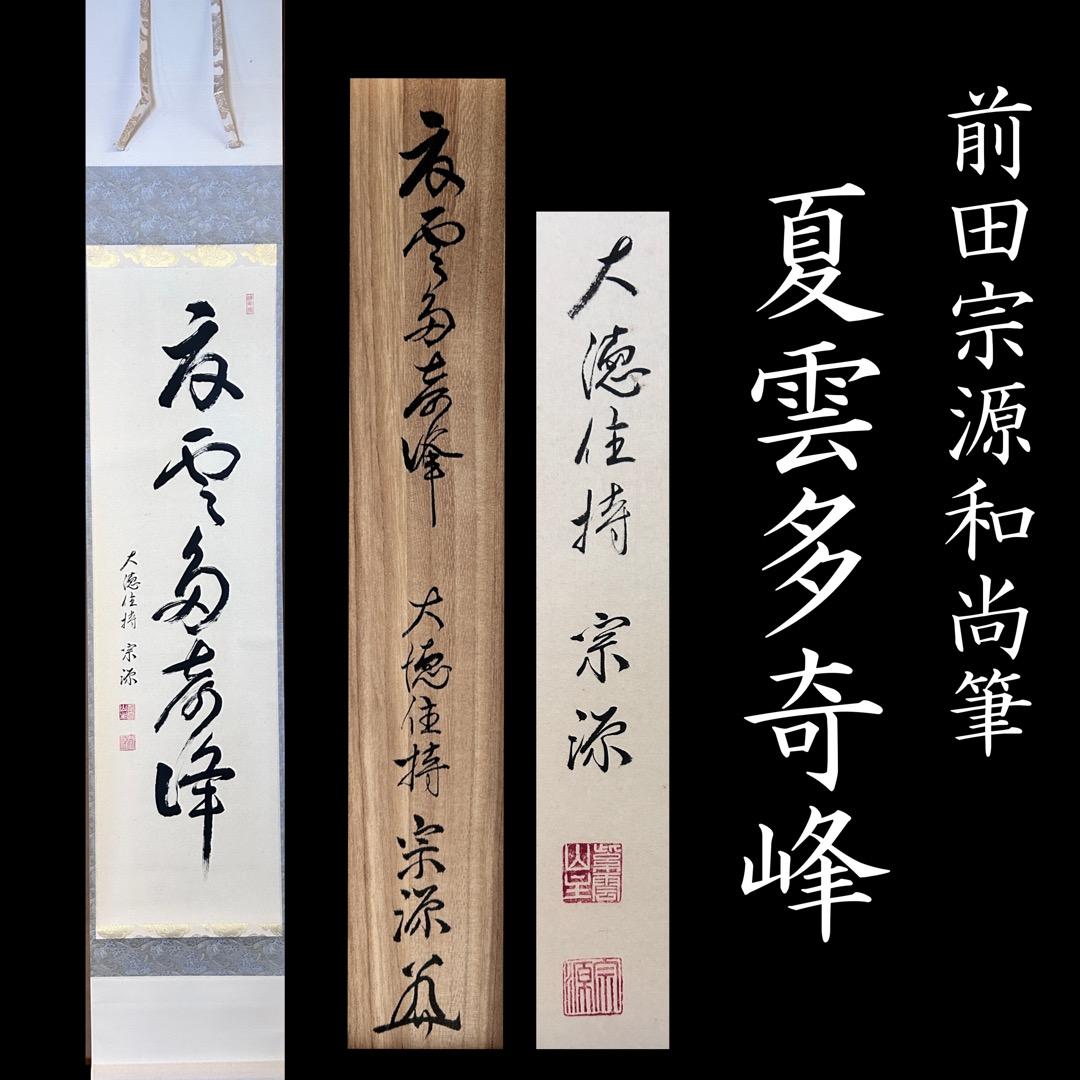 前田宗源和尚筆
夏雲多奇峰
大徳住持 宗源
宗源
夏雲多奇峰 大徳住持 宗源
夏雲多奇峰
大徳住持 宗源